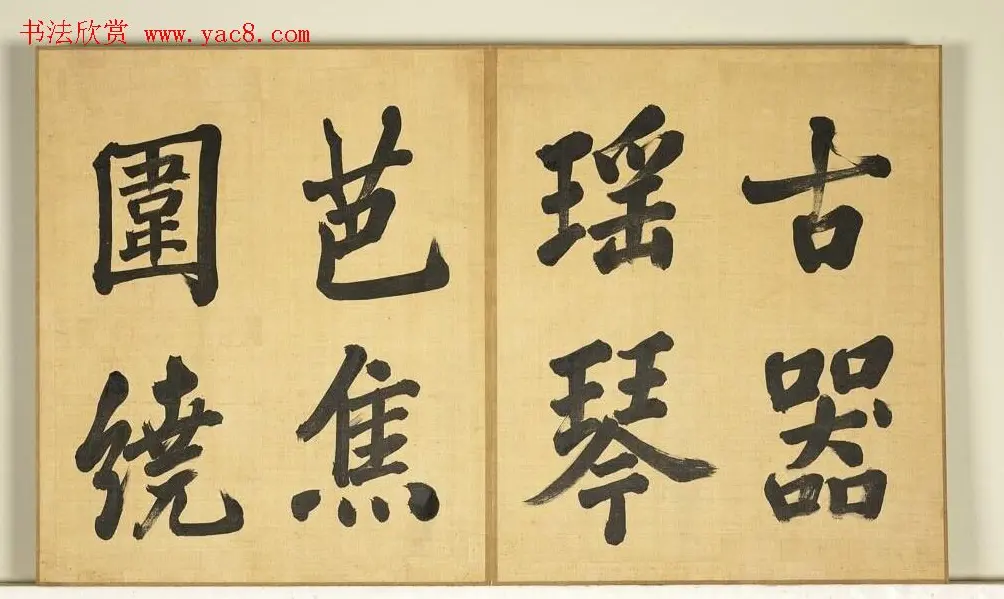 书法欣赏 www.yac8.com
古器
瑶琴
芭焦
圍繞